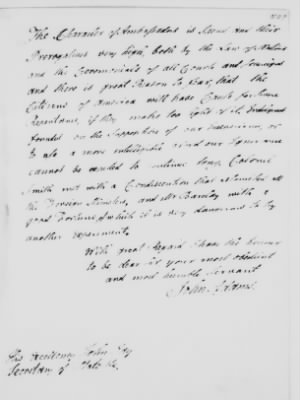 The Character of Ambassadors is Sacred and their
Prerogatives very high, both by the Law of Nations
and the Ceremonials of all Courts and Sovereigns
and there is great Reason to fear that the
Citizens of America will have Cause for
Repentance, if they make too light of it,
founded on the Supposition of our Insignificance, or
to use a more intelligible word our
cannot be wanted to continue long. Colonel
Smith met with a Condescention that astonished all
the Foreign Ministers, and Mr Barclay with a
good Fortune of which it is very dangerous to try
another experiment.
With great Regard I have the honour
to be dear Sir your most obedient
and most humble Servant
John Adams.
His Excellency John Jay
Secretary of State &c.